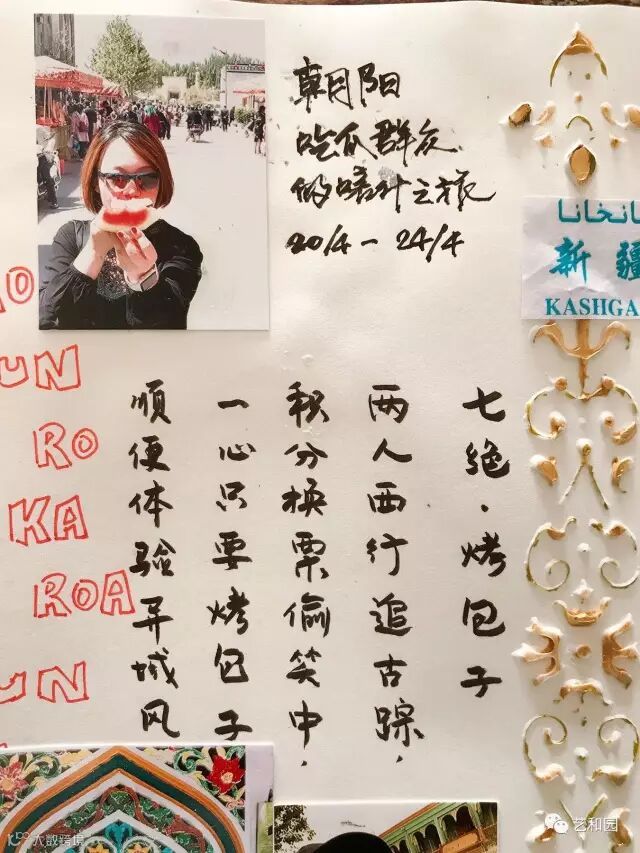 朝阳
吃瓜群众
的喀什之旅
20/4 - 24/4
انخانا
新疆
KASHGA
七绝·烤包子
两人西行追古踪，
积分换票偷笑中，
一心只要烤包子
顺便体验异城风
UN
RO
KA
ROA
UN
大数跨境
艺和园